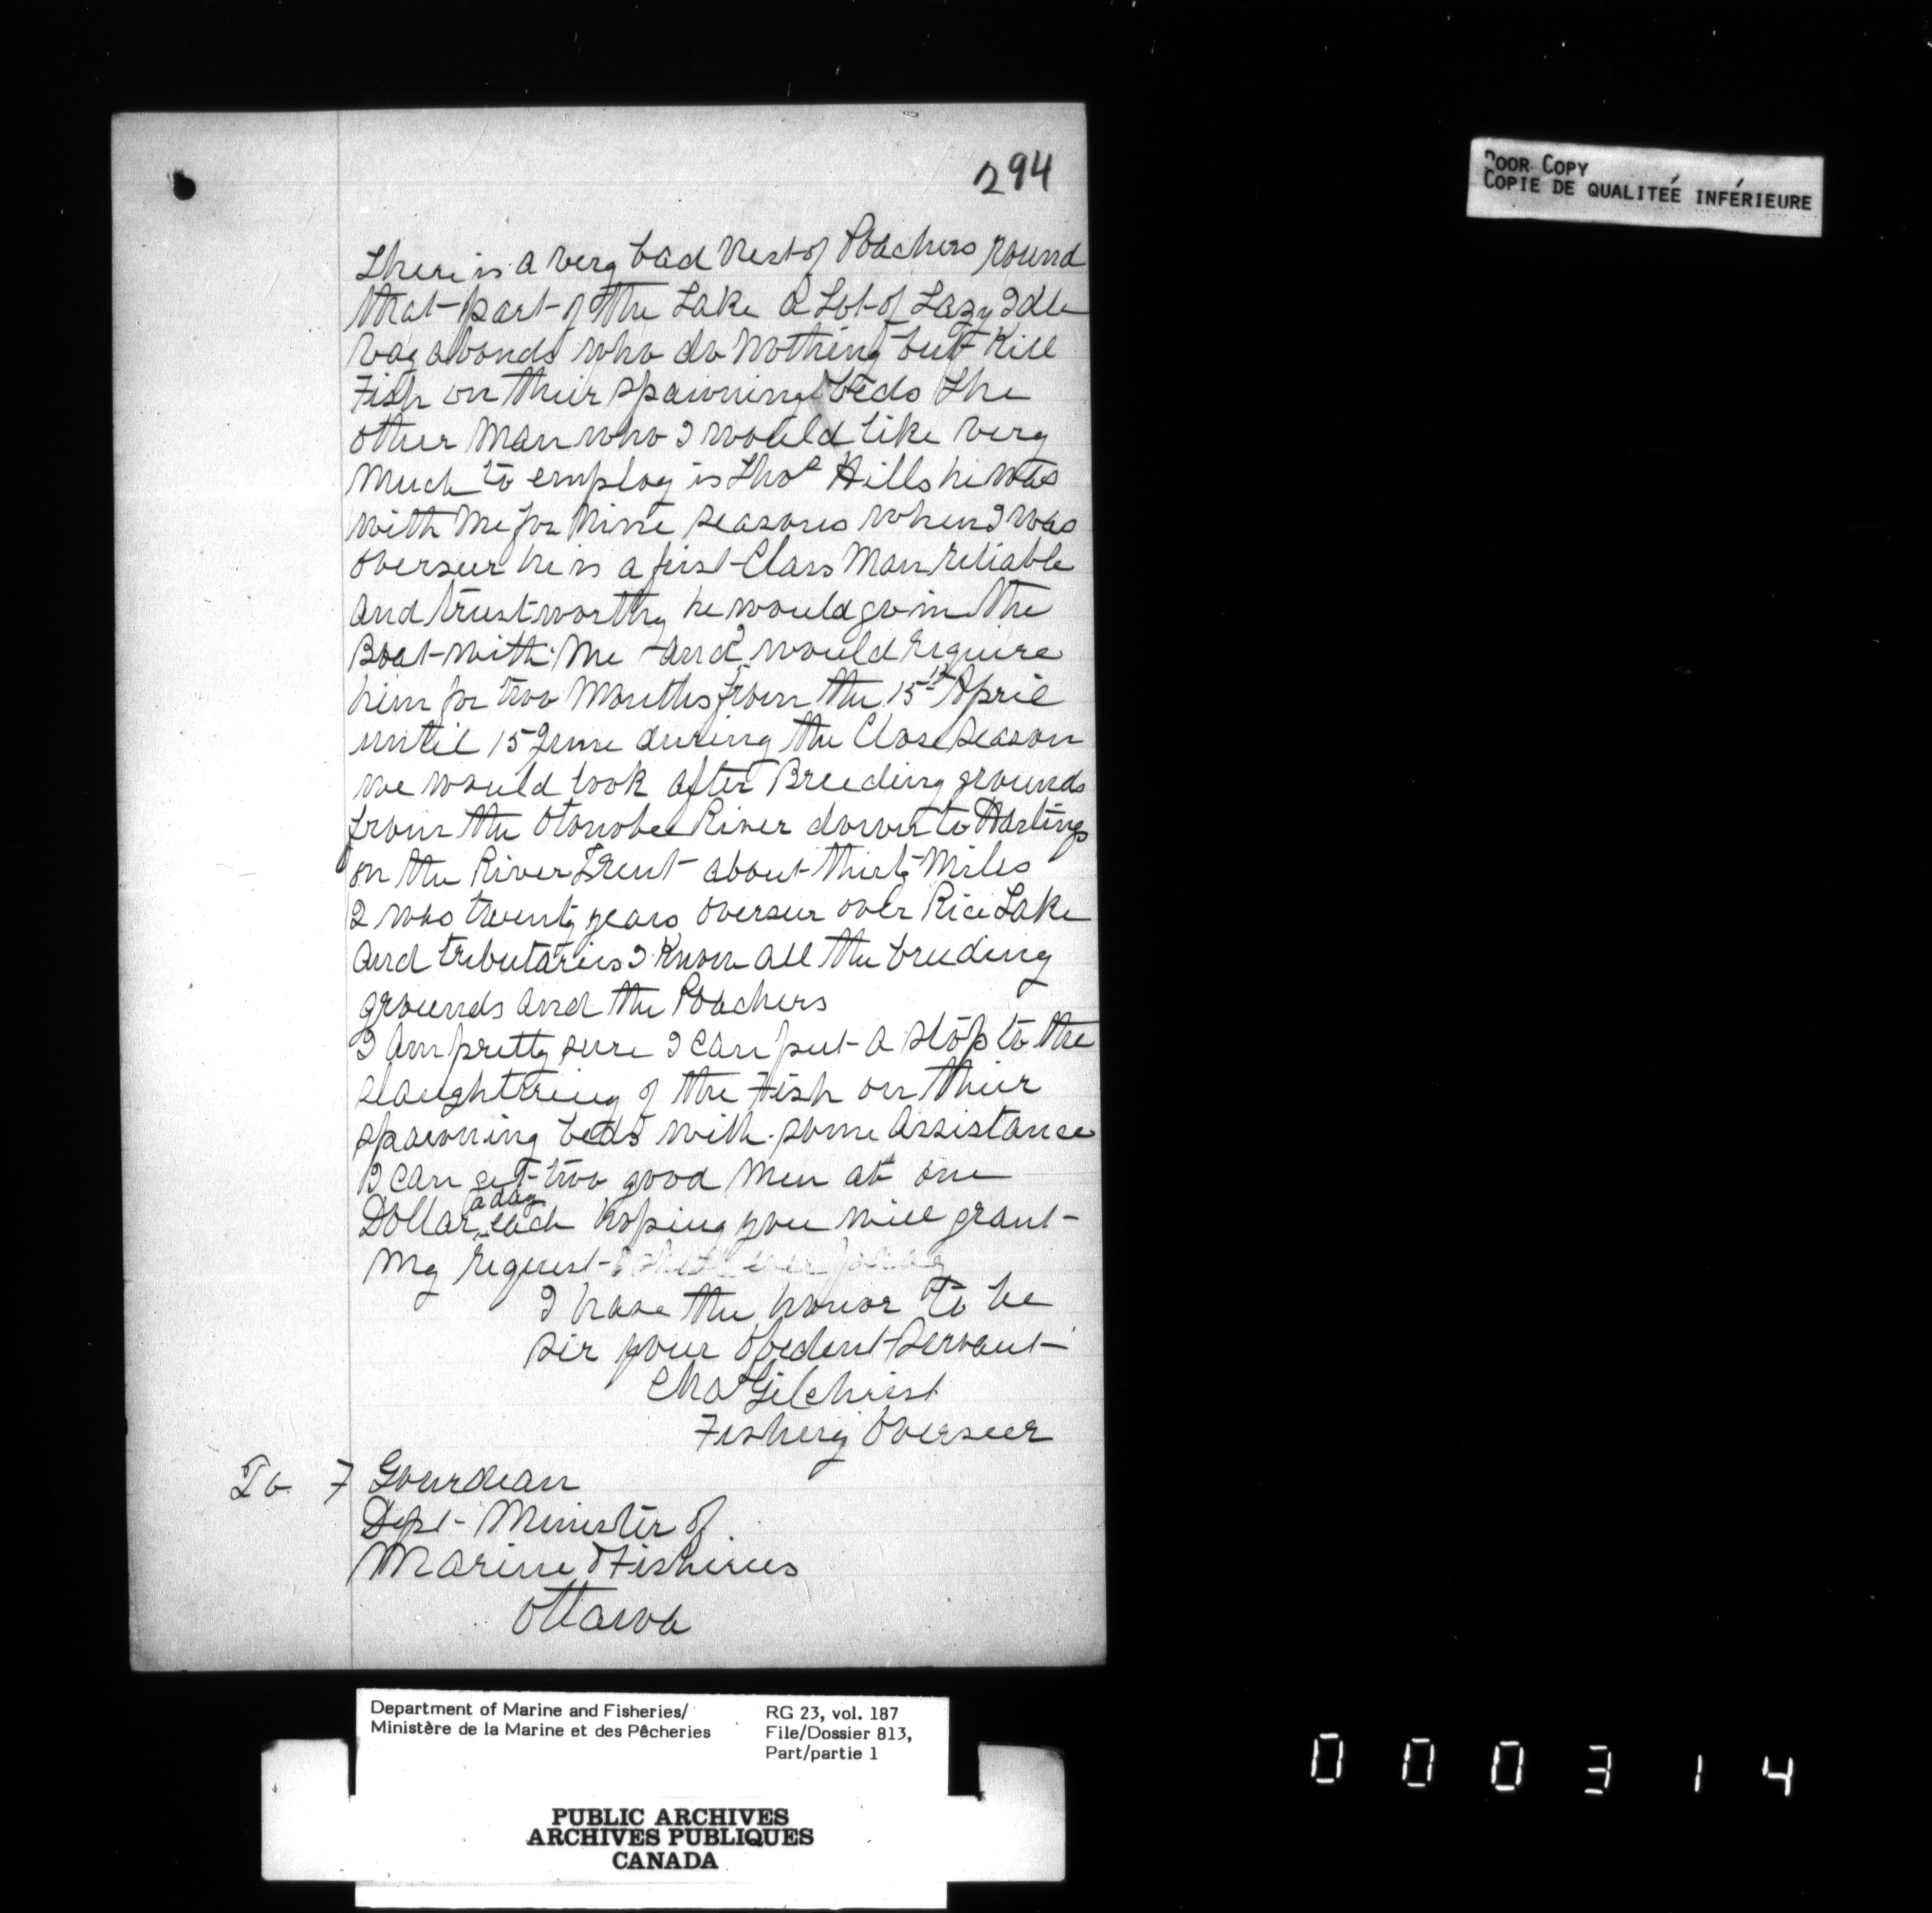 294
POOR COPY
COPIE DE QUALITEÉ INFÉRIEURE
There is a very bad Nest of Poachers round
that part of the Lake a Lot of Lazy Idle
vagabonds who do Nothing but Kill
Fish on their spawning beds The
other Man who I would like very
Much to employ is Thos Hills he was
with Me for Nine seasons when I was
overseer he is a first Class Man reliable
and trustworthy he would go in the
Boat with Me and I would require
him for two Months from the 15th April
until 15 June during the Close season
we would look after Breeding grounds
from the Otonobee River down to Hastings
on the River Trent about thirty Miles
I was twenty years overseer over Rice Lake
and tributaries I know all the breeding
grounds and the Poachers
I am pretty sure I can put a stop to the
slaughtering of the Fish on their
spawning beds with some assistance
I can get two good Men at one
Dollar a day each hoping you will grant
My request
I have the honor to be
sir your obedent servant
Chas Gilchrist
Fishery Overseer
To F Gourdeau
Dept Minister of
Marine & Fisheries
Ottawa
Department of Marine and Fisheries/
Ministère de la Marine et des Pêcheries
RG 23, vol. 187
File/Dossier 813,
Part/partie 1
PUBLIC ARCHIVES
ARCHIVES PUBLIQUES
CANADA
000314